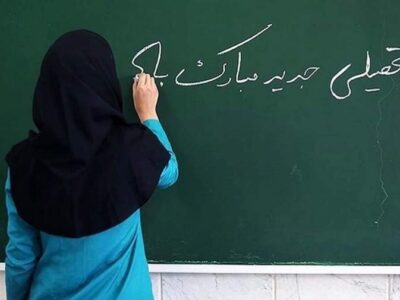 تحصیلی جدید مبارک با